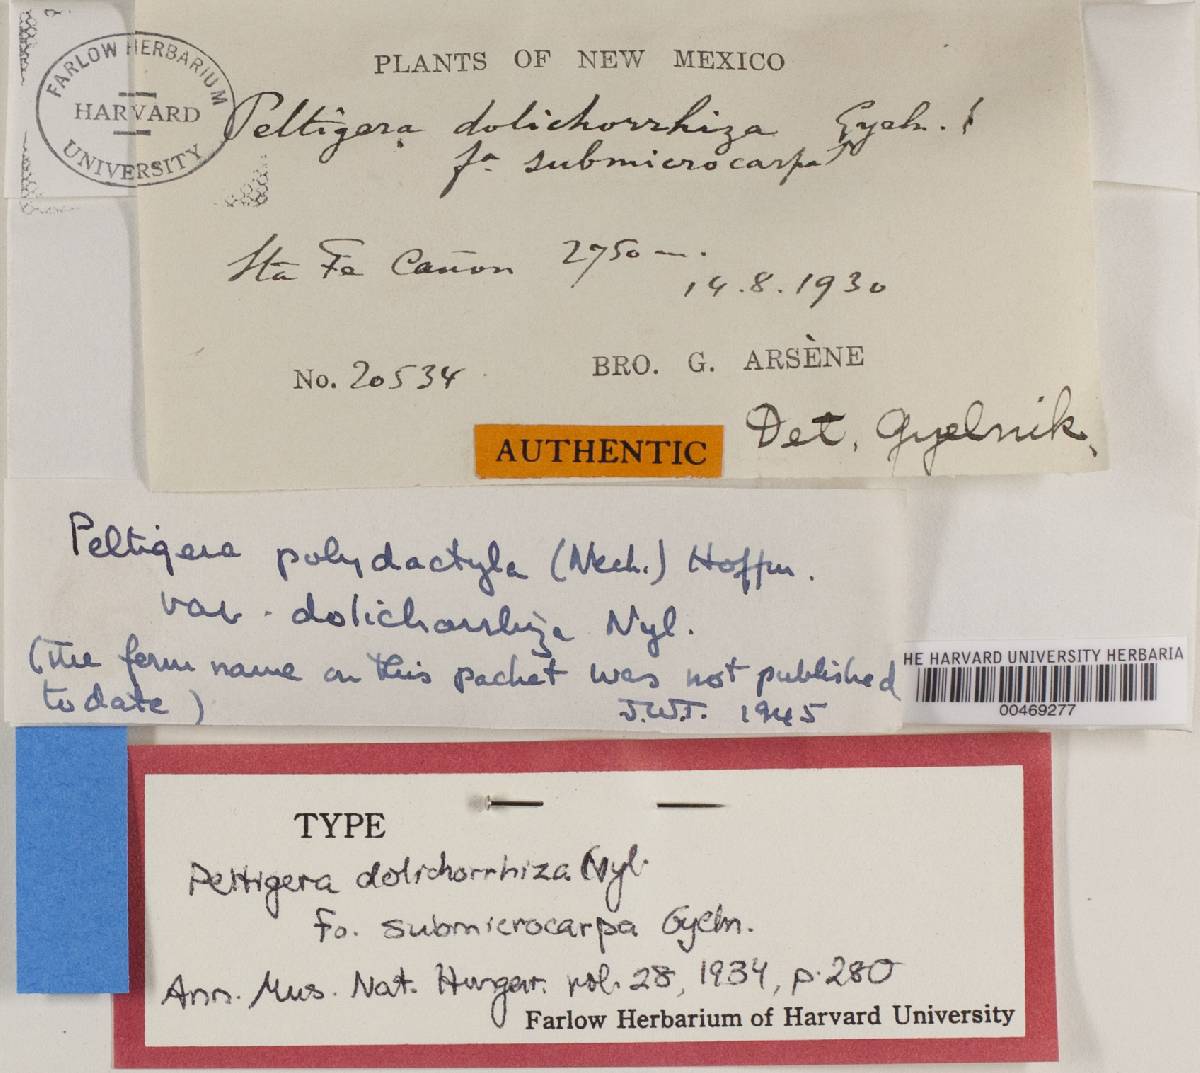 FARLOW HERBARIUM
HARVARD
UNIVERSITY
PLANTS OF NEW MEXICO
Peltigera dolichorrhiza Gyeln. !
fa submicrocarpa
Sta Fe Cañon 2750 m.
14.8.1930
No. 20534 BRO. G. ARSÈNE
AUTHENTIC
Det. Gyelnik
Peltigera polydactyla (Neck.) Hoffm.
var. dolichorrhiza Nyl.
(The form name on this packet was not published
to date) J.W.T. 1945
HE HARVARD UNIVERSITY HERBARIA
00469277
TYPE
Peltigera dolichorrhiza Nyl.
fo. submicrocarpa Gyeln.
Ann. Mus. Nat. Hungar. vol. 28, 1934, p. 280
Farlow Herbarium of Harvard University